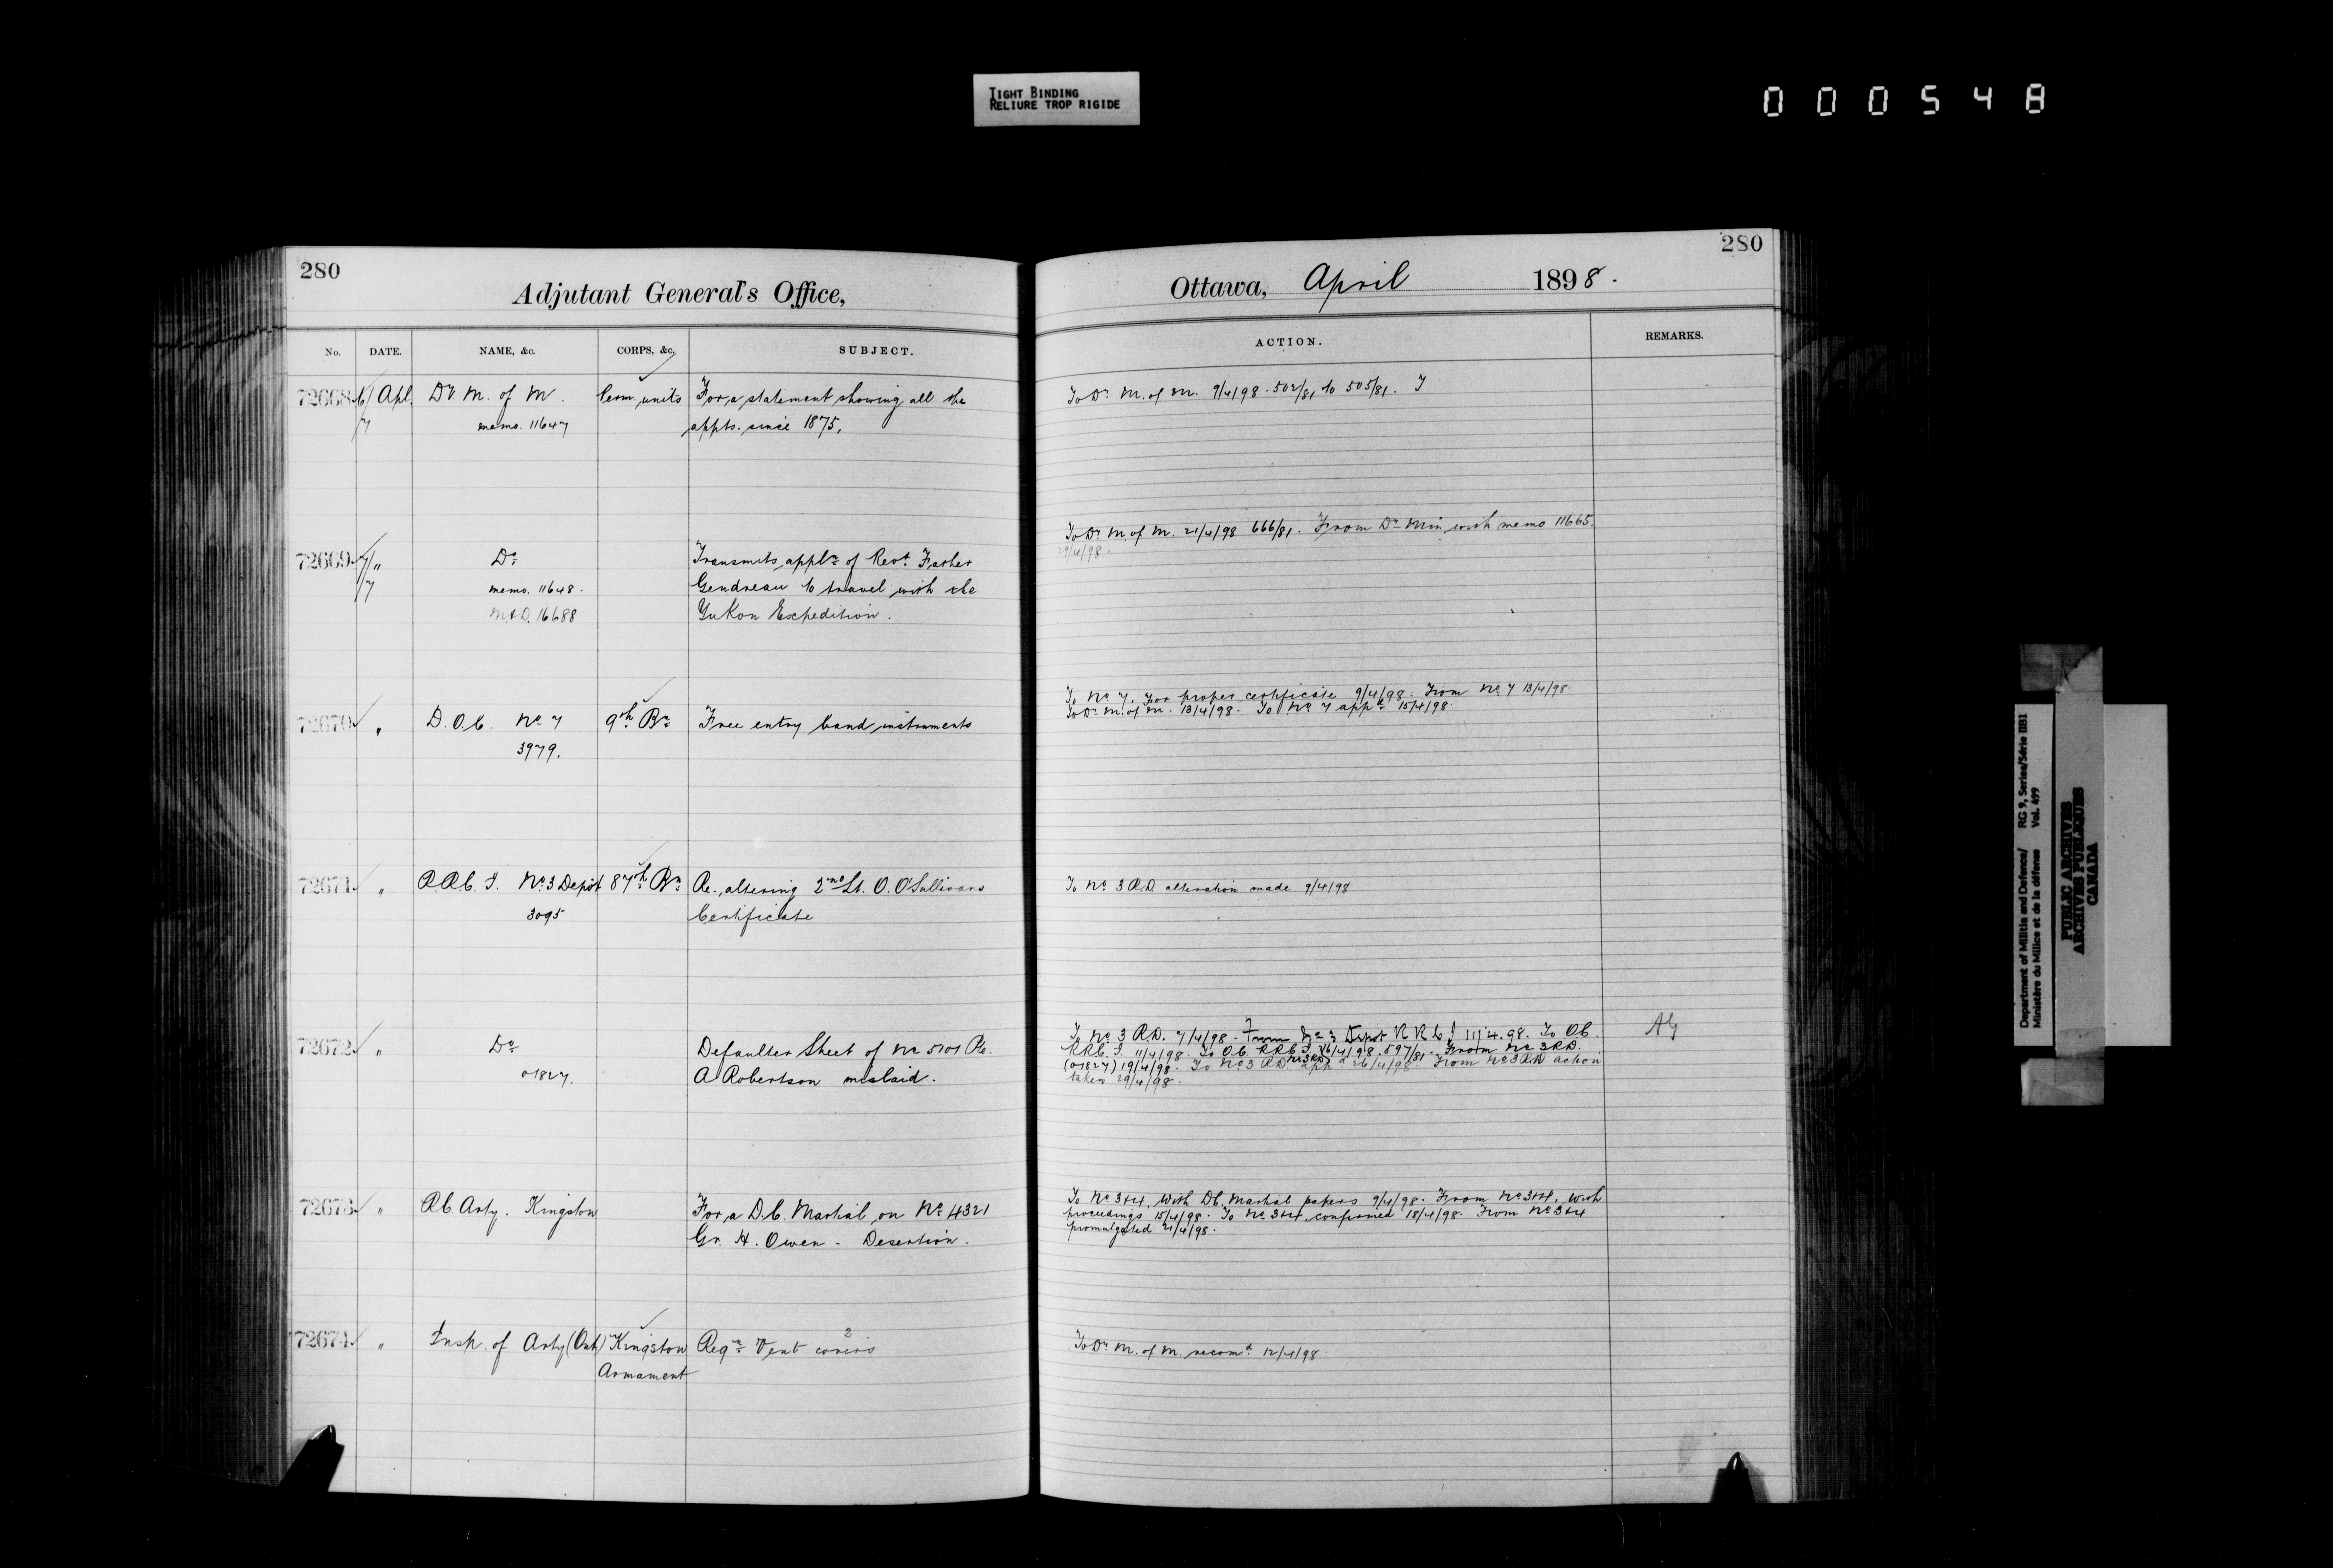 TIGHT BINDING
RELIURE TROP RIGIDE
000548
280
Adjutant General's Office,
No. DATE. NAME, &c. CORPS, &c. SUBJECT.
72668 6/7 Apl. Dr. M. of M. Perm. units For a statement showing all the
memo. 11647 appts. since 1875.
72669 7/7 " Do
Transmits appln of Revd. Father
memo. 11648. Gendreau to travel with the
M&D. 16688 Yukon Expedition.
72670 " D.O.C. No 7 9th Bn Free entry band instruments
3979.
72671 " R.R.C.I. No 3 Depot 87th Bn Re. altering 2nd Lt. O. O'Sullivans
3095 Certificate
72672 " Do Defaulter Sheet of No 5101 Pte.
01827. A Robertson mislaid.
72673 " RC Arty. Kingston For a D.C. Martial on No 4321
Gr. H. Owen - Desertion.
72674 " Insp. of Arty (Ont) Kingston Reqn 2 Vent covers
Armament
280
Ottawa, April 1898.
ACTION. REMARKS.
To Dr M. of M. 9/4/98. 502/81 to 505/81.
To Dr M. of M. 21/4/98 666/81. From Dr Min with memo 11665.
29/4/98.
To No 7, for proper certificate 9/4/98. From No 7 13/4/98.
To Dr M. of M. 13/4/98. To No 7 appd 15/4/98.
To No 3 RD alteration made 9/4/98
To No 3 RD. 7/4/98. From No 3 Depot RRCI 11/4.98. To OC. AG
RRC.I. 11/4/98. To O.C. RRC.I. 16/4/98. 597/81. From No 3RD.
(01827) 19/4/98. To No 3 RD 26/4/98. From No 3RD action
taken 29/4/98.
To No 3+4, with DC. Martial papers 9/4/98. From No 3+4, with
proceedings 15/4/98. To No 3+4, confirmed 18/4/98. From No 3+4
promulgated 21/4/98.
To Dr M. of M. recomd 12/4/98
Department of Militia and Defence/ RG 9, Series/Série IIB1
Ministère du Milice et de la défense Vol. 499
PUBLIC ARCHIVES
ARCHIVES PUBLIQUES
CANADA